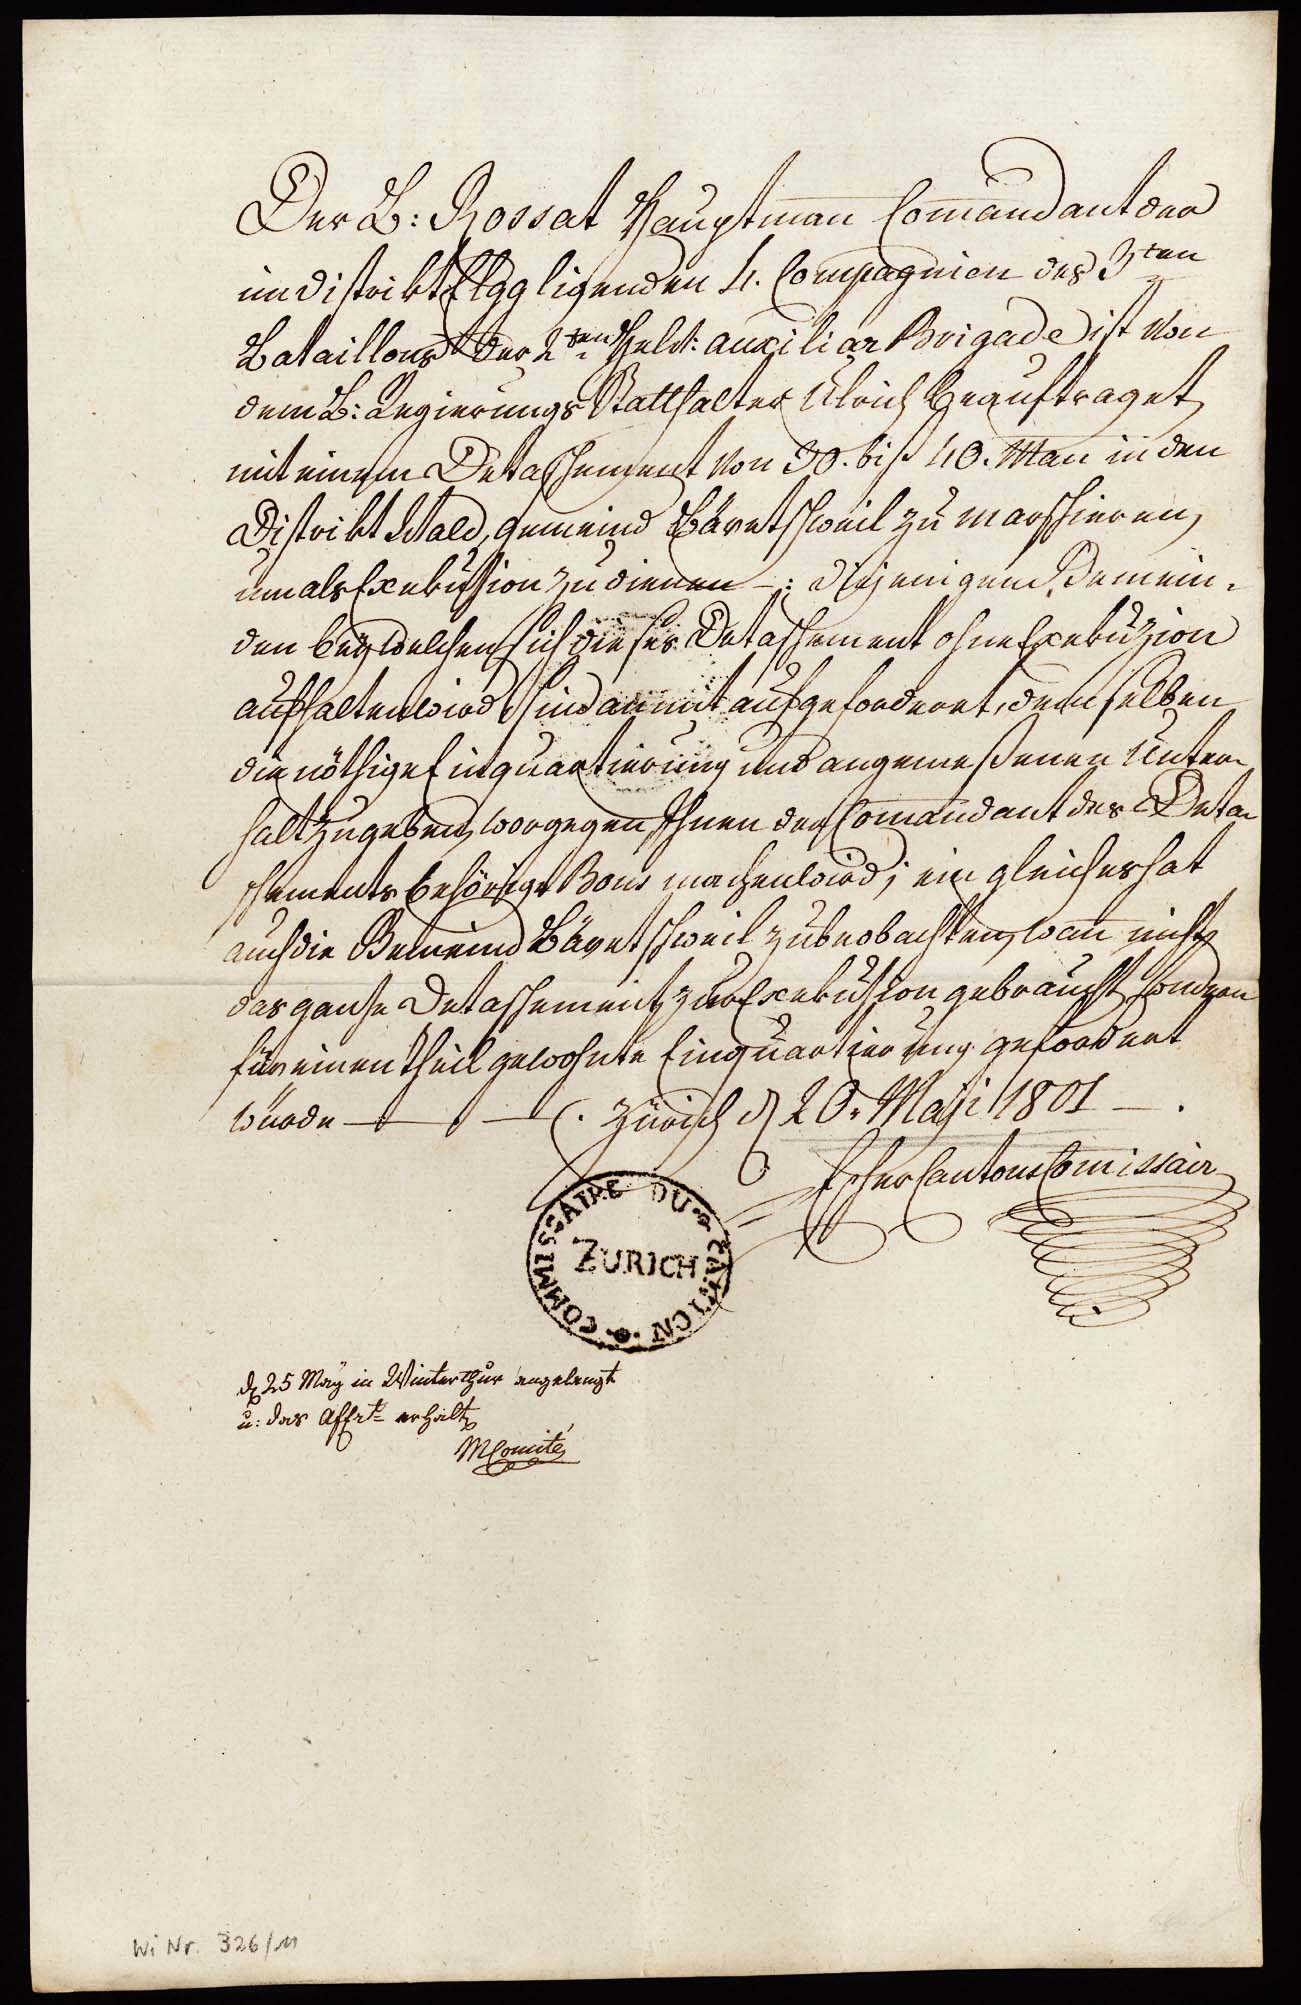 Der B: Rossat Hauptman̄ Com̄andant der
im Distrikt Elgg ligenden 4. Compagnien des 3ten
Bataillons der 2ten Helv: auxiliar Brigade ist von
dem B: Regierungs Statthalter Ulrich beauftraget,
mit einem Detaschement von 30. bis 40. Man̄ in den
Distrikt Wald, Gemeind Bäretschweil zu marschieren,
um als Exekution zu dienen —: diejenigen Gemein-
den bey welchen sich dieses Detaschement ohne Exekuzion
aufhalten wird sind anmit aufgeforderet, demselben
die nöthige Einquartierung und angemeßenen Unter-
halt zu geben, worgegen Ihnen der Com̄andant des Deta-
schements behörige Bons machen wird; ein gleiches hat
auch die Gemeind Bäretschweil zu beobachten, wan̄ nicht
das ganze Detaschement zur Exekution gebraucht, sondern
für einen Theil gewohnte Einquartierung gefordert
würde — — . Zürich d 20. Maji 1801 — .
Escher Cantons Com̄issair
COMMISSAIRE DU CANTON
ZURICH
d 25 May in Winterthur angelangt
u: das erhalt
MComité
Wi Nr. 326/11